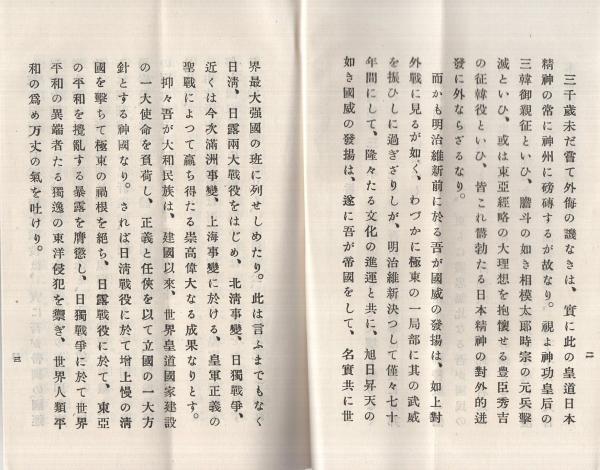 三千歳未だ嘗て外侮の譏なきは、實に此の皇道日本
精神の常に神州に磅礴するが故なり。視よ神功皇后の
三韓御親征といひ、膽斗の如き相模太郎時宗の元兵撃
滅といひ、或は東亞經略の大理想を抱懐せる豊臣秀吉
の征韓役といひ、皆これ欝勃たる日本精神の對外的迸
發に外ならざるなり。
而かも明治維新前に於る吾が國威の發揚は、如上對
外戰に見るが如く、わづかに極東の一局部に其の武威
を振ひしに過ぎざりしが、明治維新決つして僅々七十
年間にして、隆々たる文化の進運と共に、旭日昇天の
如き國威の發揚は、遂に吾が帝國をして、名實共に世
二
界最大强國の班に列せしめたり。此は言ふまでもなく
日淸、日露兩大戰役をはじめ、北淸事變、日獨戰爭、
近くは今次滿洲事變、上海事變に於ける、皇軍正義の
聖戰によつて贏ち得たる崇高偉大なる成果なりとす。
抑々吾が大和民族は、建國以來、世界皇道國家建設
の一大使命を負荷し、正義と任俠を以て立國の一大方
針とする神國なり。されば日淸戰役に於て增上慢の淸
國を擊ちて極東の禍根を絶ち、日露戰役に於て、東亞
の平和を攪亂する暴露を膺懲し、日獨戰爭に於て世界
平和の異端者たる獨逸の東洋侵犯を禦ぎ、世界人類平
和の爲め万丈の氣を吐けり。
三